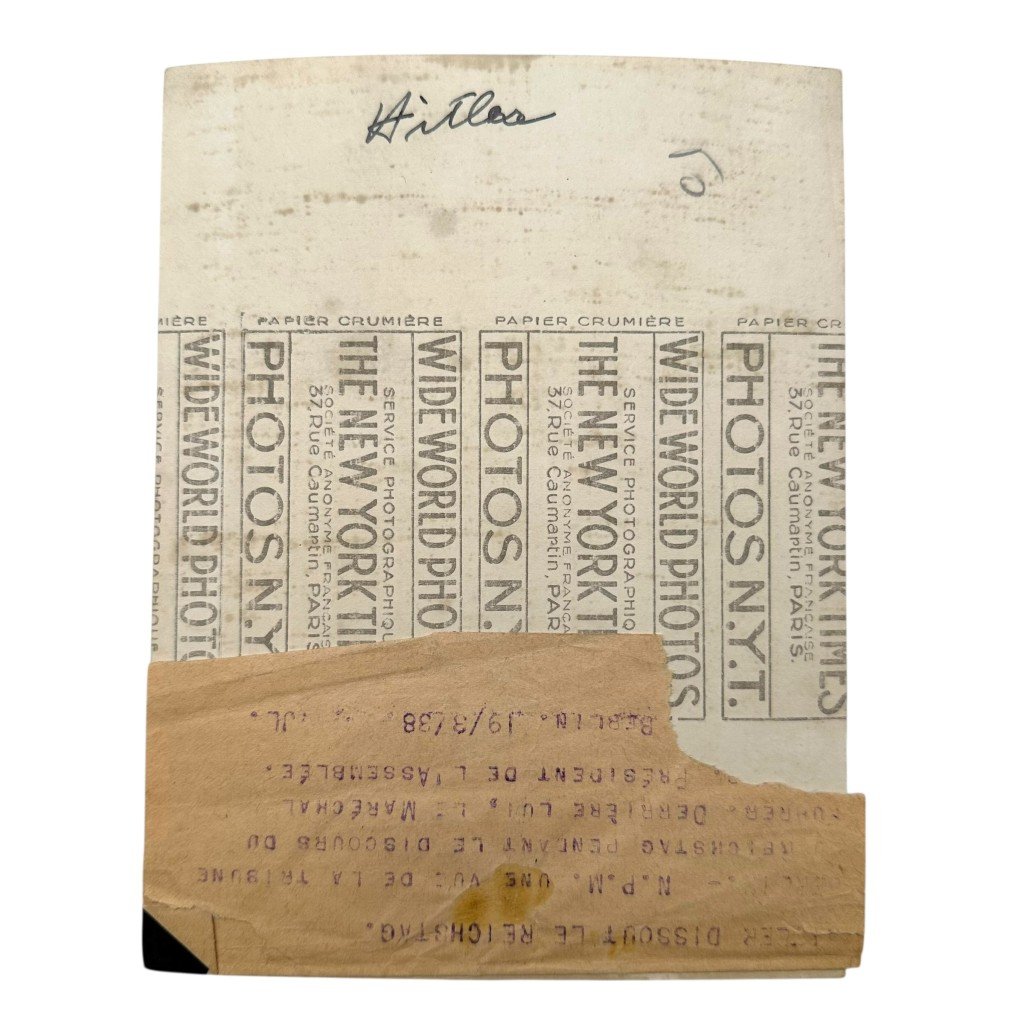 Hitler
MIÈRE
PAPIER CRUMIÈRE
PAPIER CRUMIÈRE
PAPIER CR
THE NEW YORK TIMES
SOCIÉTÉ ANONYME FRANÇAISE
37, Rue Caumartin, PARIS.
PHOTOS N.Y.T.
WIDE WORLD PHOTOS
SERVICE PHOTOGRAPHIQU
THE NEW YORK TI
SOCIÉTÉ ANONYME FRANÇA
37, Rue Caumartin, PAR
PHOTOS N.
WIDE WORLD PHO
SERVICE PHOTOGRAPHIQU
THE NEW YORK TI
SOCIÉTÉ ANONYME FRANÇAISE
37, Rue Caumartin, PARIS
PHOTOS N.Y
WIDE WORLD PHOTO
SERVICE PHOTOGRAPHIQUE
TLER DISSOUT LE REICHSTAG.
N.P.M. UNE VUE DE LA TRIBUNE
REICHSTAG PENDANT LE DISCOURS DU
FUHRER. DERRIÈRE LUI, LE MARÉCHAL
PRÉSIDENT DE L'ASSEMBLÉE.
BERLIN. 19/3/38 JL.